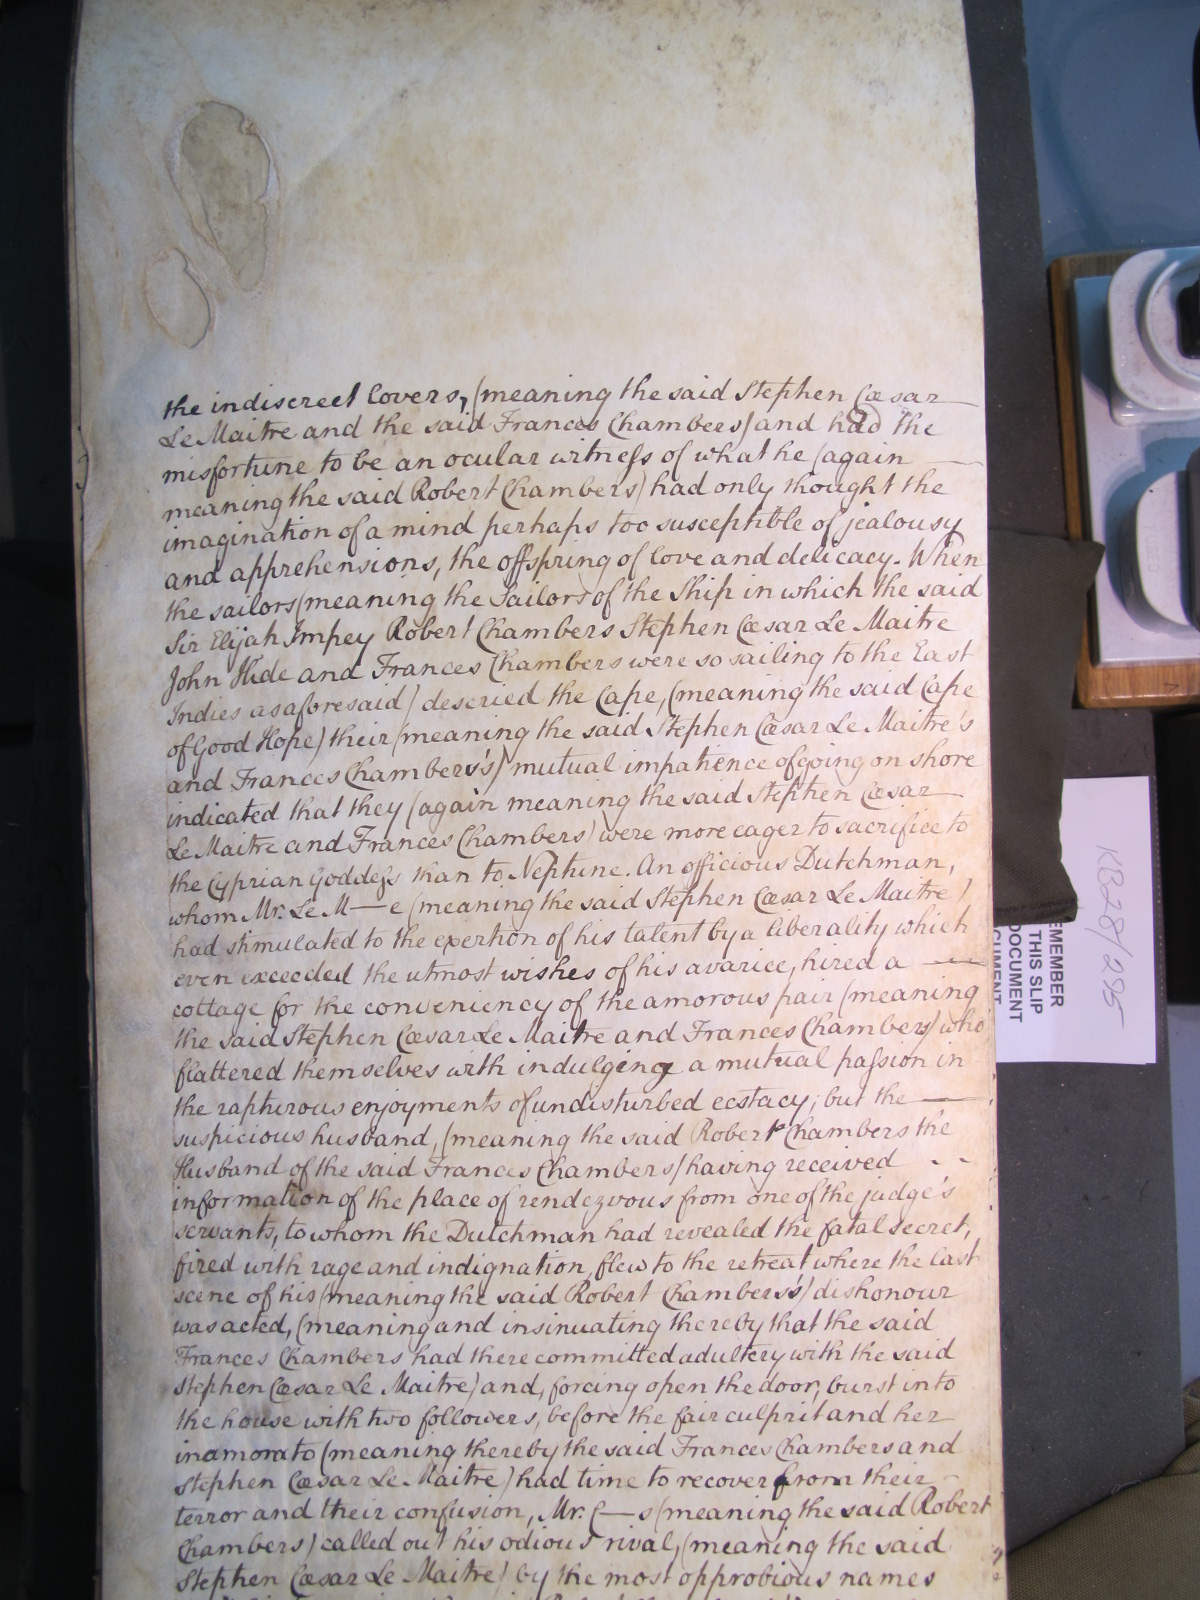 the indiscreet lovers, (meaning the said Stephen Cæsar
Le Maitre and the said Frances Chambers) and had the
misfortune to be an ocular witness of what he (again
meaning the said Robert Chambers) had only thought the
imagination of a mind perhaps too susceptible of jealousy
and apprehensions, the offspring of love and delicacy. When
the sailors (meaning the Sailors of the Ship in which the said
Sir Elijah Impey Robert Chambers Stephen Cæsar Le Maitre
John Hide and Frances Chambers were so sailing to the East
Indies as aforesaid) descried the Cape, (meaning the said Cape
of Good Hope) their (meaning the said Stephen Cæsar Le Maitre's
and Frances Chambers's) mutual impatience of going on shore
indicated that they (again meaning the said Stephen Cæsar
Le Maitre and Frances Chambers) were more eager to sacrifice to
the Cyprian Goddess than to Neptune. An officious Dutchman,
whom Mr. Le M—e (meaning the said Stephen Cæsar Le Maitre)
had stimulated to the exertion of his talent by a liberality which
even exceeded the utmost wishes of his avarice, hired a
cottage for the conveniency of the amorous pair (meaning
the said Stephen Cæsar Le Maitre and Frances Chambers) who
flattered themselves with indulging a mutual passion in
the rapturous enjoyments of undisturbed ecstacy; but the
suspicious husband, (meaning the said Robert Chambers the
Husband of the said Frances Chambers) having received
information of the place of rendezvous from one of the judge's
servants, to whom the Dutchman had revealed the fatal secret,
fired with rage and indignation, flew to the retreat where the last
scene of his (meaning the said Robert Chambers's) dishonour
was acted, (meaning and insinuating thereby that the said
Frances Chambers had there committed adultery with the said
Stephen Cæsar Le Maitre) and, forcing open the door, burst into
the house with two followers, before the fair culprit and her
inamorato (meaning thereby the said Frances Chambers and
Stephen Cæsar Le Maitre) had time to recover from their
terror and their confusion, Mr. C—s (meaning the said Robert
Chambers) called out his odious rival, (meaning the said
Stephen Cæsar Le Maitre) by the most opprobious names
KB28/295
EMEMBER
THIS SLIP
DOCUMENT
CUMENT